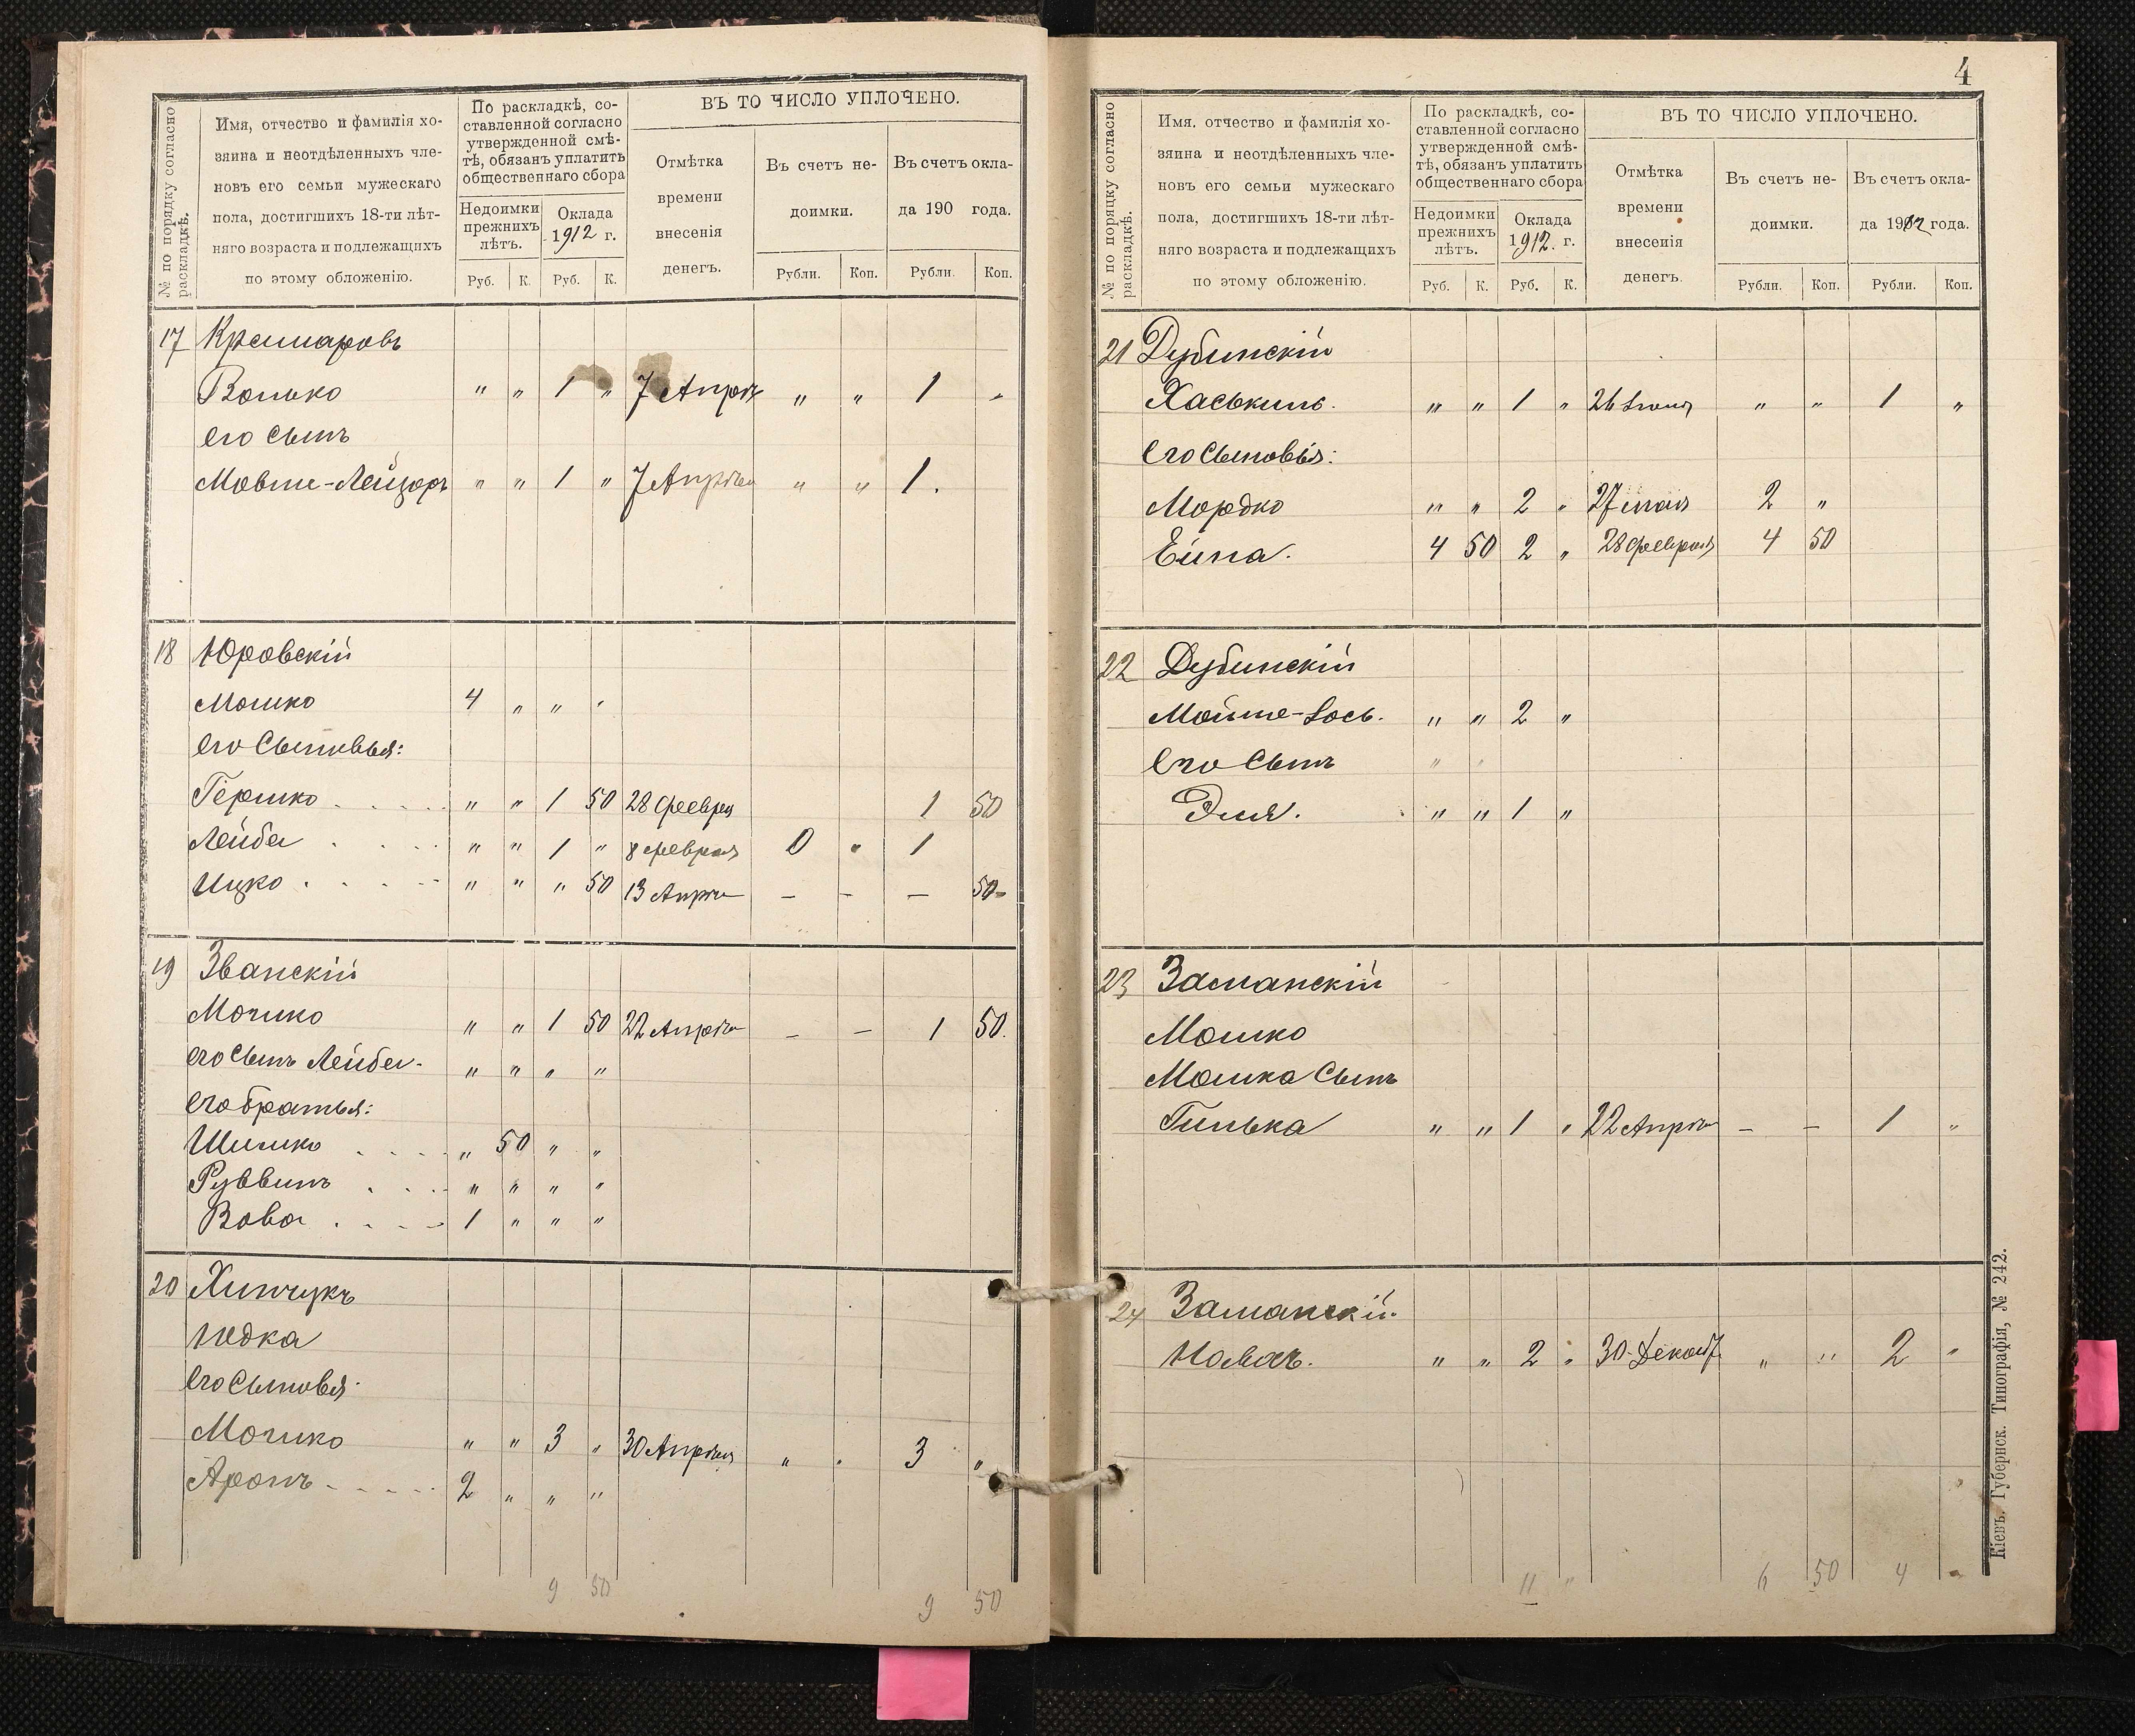 № по порядку согласно раскладкѣ.
Имя, отчество и фамилія хозяина и неотдѣленныхъ членовъ его семьи мужескаго пола, достигшихъ 18-ти лѣтняго возраста и подлежащихъ по этому обложенію.
По раскладкѣ, составленной согласно утвержденной смѣтѣ, обязанъ уплатить общественнаго сбора
Недоимки прежнихъ лѣтъ.
Оклада 1912 г.
Руб. К. Руб. К.
ВЪ ТО ЧИСЛО УПЛОЧЕНО.
Отмѣтка времени внесенія денегъ.
Въ счетъ недоимки.
Въ счетъ оклада 190 года.
Рубли. Коп. Рубли. Коп.
17 Крамаровъ
Волько " " 1 " 7 Апрѣ " " 1 "
его сынъ
Мовше-Лейзоръ " " 1 " 7 Апрѣля " " 1.
18 Юровскій
Мошко 4 " " "
его сыновья:
Гершко " " 1 50 28 феврал 1 50
Лейба " " 1 " 8 февраля 0 " 1
Ицко " " " 50 13 Апрѣл — — — 50
19 Званскій
Мошко " " 1 50 22 Апрѣл — — 1 50.
его сынъ Лейба " " " "
его братья:
Шимко " 50 " "
Руввинъ " " " "
Вова 1 " " "
20 Хинчукъ
Юдка
его сыновья
Мошко " " 3 " 30 Апрѣля " " 3 "
Аронъ 2 " " "
9 50 9 50
4
№ по порядку согласно раскладкѣ.
Имя, отчество и фамилія хозяина и неотдѣленныхъ членовъ его семьи мужескаго пола, достигшихъ 18-ти лѣтняго возраста и подлежащихъ по этому обложенію.
По раскладкѣ, составленной согласно утвержденной смѣтѣ, обязанъ уплатить общественнаго сбора
Недоимки прежнихъ лѣтъ.
Оклада 1912. г.
Руб. К. Руб. К.
ВЪ ТО ЧИСЛО УПЛОЧЕНО.
Отмѣтка времени внесенія денегъ.
Въ счетъ недоимки.
Въ счетъ оклада 1912 года.
Рубли. Коп. Рубли. Коп.
21 Дубинскій
Хаськиль. " " 1 " 26 " " 1 "
его сыновья:
Мордко " " 2 " 27 мая 2 "
Ейна. 4 50 2 " 28 февраля 4 50
22 Дубинскій
Мойше-Iось. " " 2 "
его сынъ " "
Эля. " " 1 "
23 Заманскій
Мошко
Мошка сынъ
Гилька " " 1 " 22 Апрѣл — — 1 "
24 Заманскій.
" " 2 " 30 Декаб " " 2 "
11 " 6 50 4 "
Кіевъ. Губернск. Типографія, № 242.